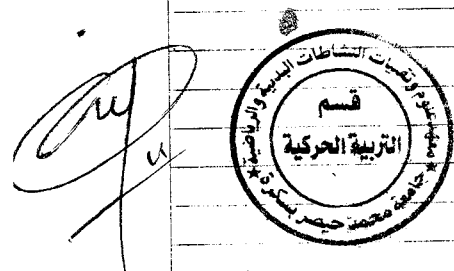 معهد علوم وتقنيات النشاطات البدنية والرياضية
قسم
التربية الحركية
جامعة محمد خيضر بسكرة